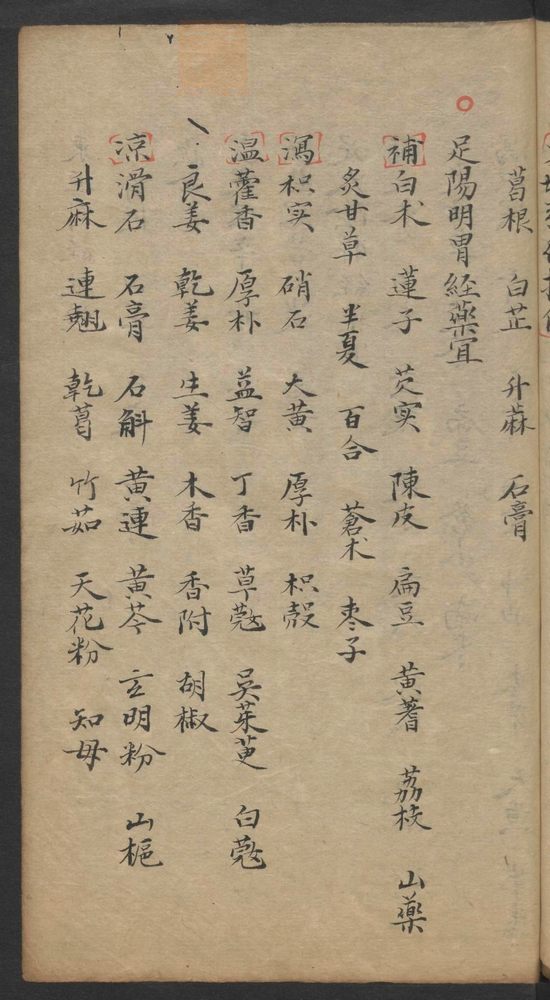 葛根 白芷 升蔴 石膏
足陽明胃経藥宜
補白术 蓮子 芡实 陳皮 扁豆 黄蓍 荔枝 山藥
炙甘草 半夏 百合 蒼术 枣子
瀉枳实 硝石 大黄 厚朴 枳殼
温藿香 厚朴 益智 丁香 草蔲 吳茱萸 白蔲
良姜 乾姜 生姜 木香 香附 胡椒
涼滑石 石膏 石斛 黄連 黄芩 玄明粉 山梔
升麻 連翹 乾葛 竹茹 天花粉 知母